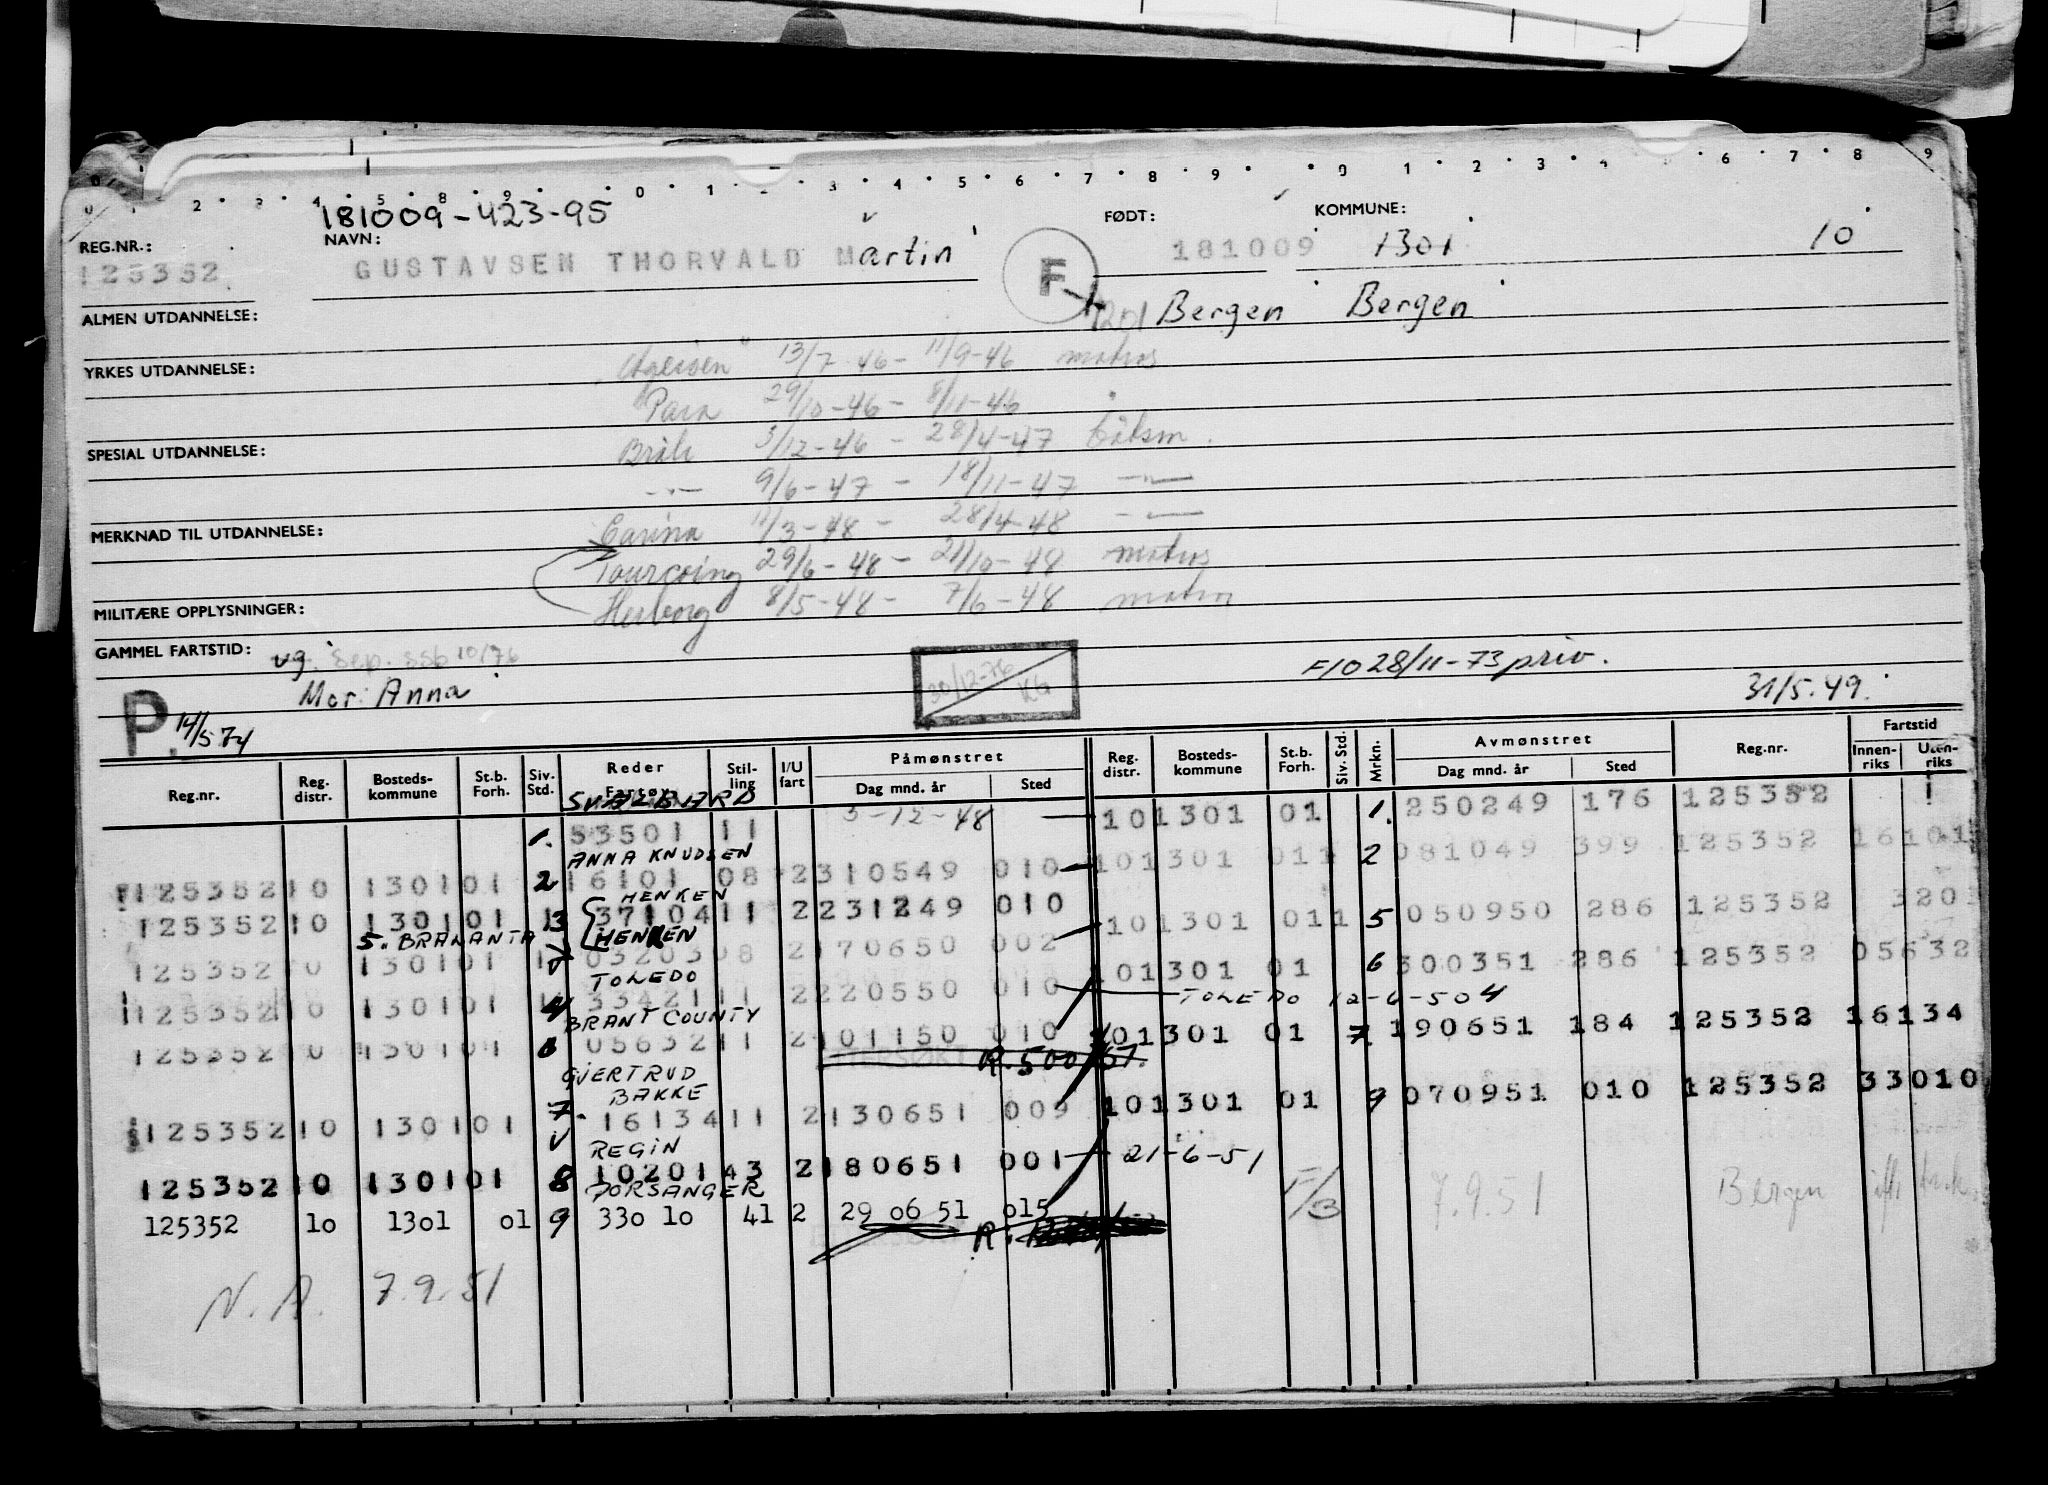 181009-423-95
REG.NR.: NAVN: FØDT: KOMMUNE:
125352 GUSTAVSEN THORVALD Martin F 181009 1301 10
ALMEN UTDANNELSE: 1201 Bergen Bergen
YRKES UTDANNELSE: 13/7-46 - 11/9-46 matros
Para 29/10-46 - 8/11-46 "
SPESIAL UTDANNELSE: 3/12-46 - 28/4-47 båtsm.
9/6-47 - 18/11-47
MERKNAD TIL UTDANNELSE: Carina 11/3-48 - 28/4-48
Tourcoing 29/6-48 - 21/10-48 matros
MILITÆRE OPPLYSNINGER: Herborg 8/5-48 - 7/6-48 matros
GAMMEL FARTSTID: vg. Sep. ssb 10/76
30/12-76
F/O 28/11-73 priv.
Mor: Anna
31/5.49.
P. 14/5 74
Påmønstret Avmønstret Fartstid
Reg.nr. Reg. distr. Bosteds- kommune St.b. Forh. Siv. Std. Reder Fartøy Stil- ling I/U fart Dag mnd. år Sted Reg. distr. Bosteds- kommune St.b. Forh. Siv. Std. Mrkn. Dag mnd. år Sted Reg.nr. Innen- riks Uten- riks
SVALBARD
1. 53501 11 3-12-48 10 1301 01 1. 250249 176 125352
ANNA KNUDSEN
125352 10 1301 01 2 16101 08 2 310549 010 10 1301 01 1 2 081049 399 125352 16101
HENKEN
125352 10 1301 01 13 37104 11 2 231249 010 10 1301 01 1 5 050950 286 125352 3203
5. BRAHANTA HENKEN
125352 10 1301 01 03203 08 2 170650 002 10 1301 01 6 300351 286 125352 05632
TOLEDO
125352 10 1301 01 4 33421 11 2 220550 010 TOLEDO 12-6-50 4
BRANT COUNTY
125352 10 1301 01 6 05632 11 2 101150 010 10 1301 01 7. 190651 184 125352 16134
R. 500/57.
GJERTRUD
BAKKE
125352 10 1301 01 7. 16134 11 2 130651 009 10 1301 01 9 070951 010 125352 33010
REGIN
125352 10 1301 01 8 10201 43 2 180651 001 21-6-51
PORSANGER
125352 10 1301 01 9 330 10 41 2 29 06 51 015 F/3 7.9.51 Bergen
R.
N.A. 7.9.51